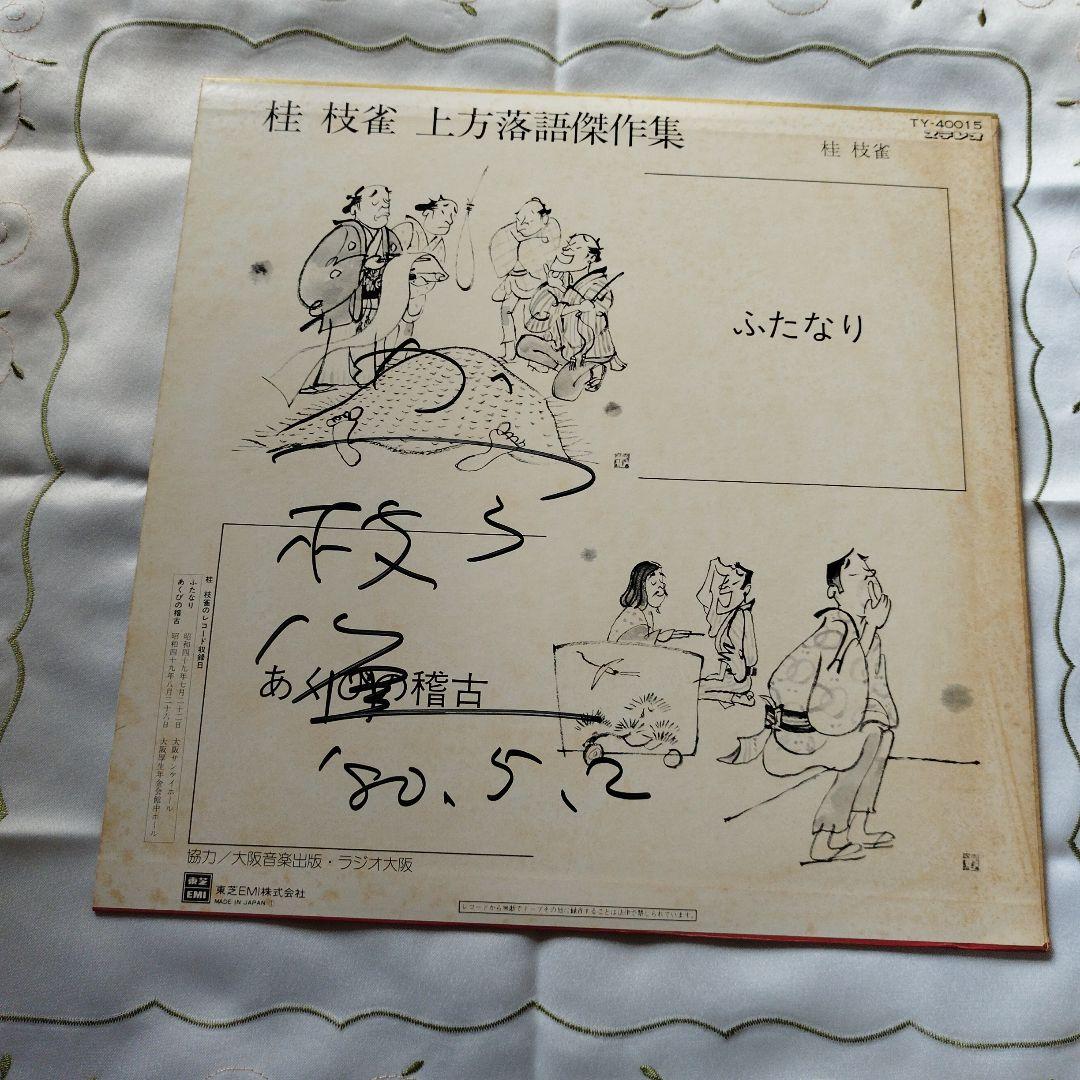 桂 枝雀 上方落語傑作集
TY-40015
ステレオ
桂 枝雀
ふたなり
枝
'80、5、12
あくびの稽古
桂 枝雀のレコード収録日
ふたなり 昭和四十九年七月二十二日 大阪サンケイホール
あくびの稽古 昭和四十九年八月二十八日 大阪厚生年金会館中ホール
協力/大阪音楽出版・ラジオ大阪
東芝
EMI
東芝EMI株式会社
MADE IN JAPAN ①
レコードから無断でテープその他に録音することは法律で禁じられています。